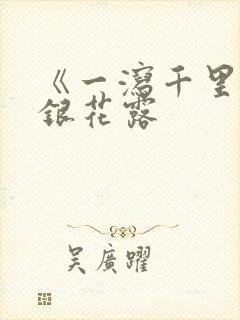 《一瀉千里
銀花露
吴廣躍